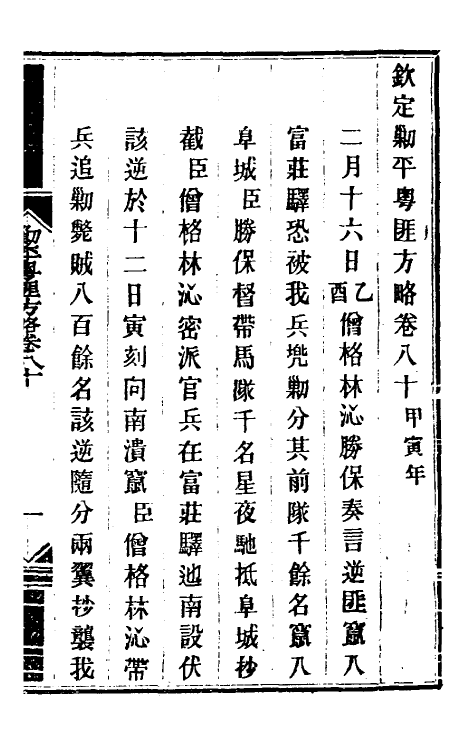 欽定勦平粵匪方略卷八十甲寅年
二月十六日乙酉僧格林沁勝保奏言逆匪竄入
富莊驛恐被我兵兜勦分其前隊千餘名竄入
阜城臣勝保督帶馬隊千名星夜馳抵阜城抄
截臣僧格林沁密派官兵在富莊驛迆南設伏
該逆於十二日寅刻向南潰竄臣僧格林沁帶
兵追勦斃賊八百餘名該逆隨分兩翼抄襲我
勦平粵匪方略卷八十
一